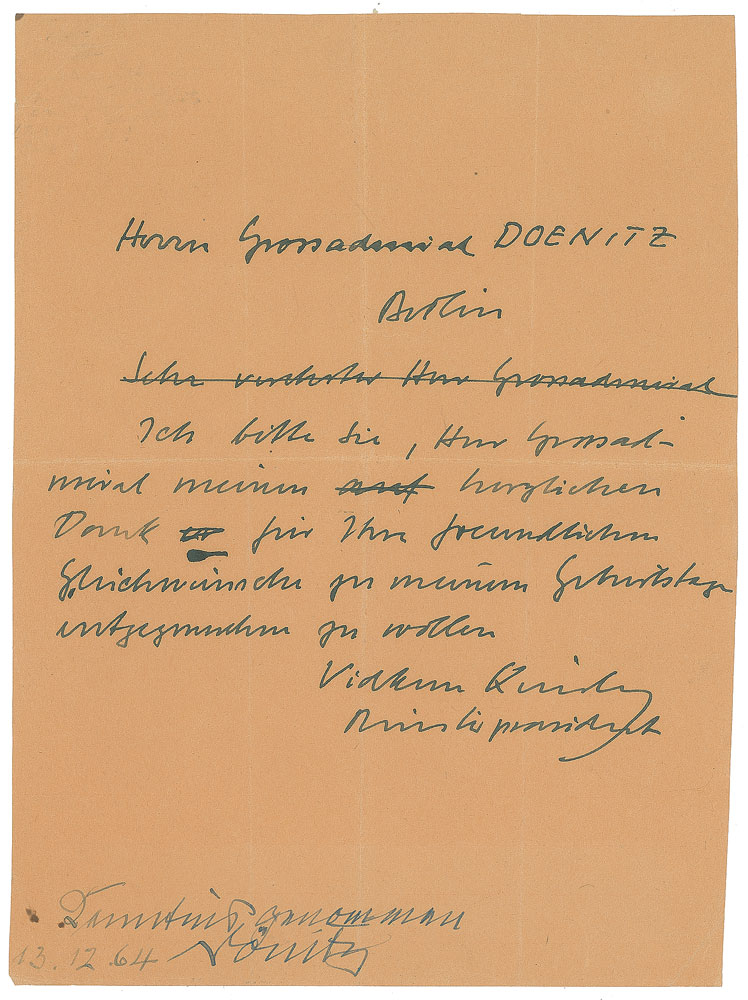 Herrn Grossadmiral DOENITZ
Berlin
Sehr verehrter Herr Grossadmiral
Ich bitte Sie, Herr Grossad-
miral meinen auf herzlichen
Dank für Ihre freundlichen
Glückwünsche zu meinem Geburtstage
entgegennehmen zu wollen
Vidkun Quisling
Ministerpräsident
Kenntnis genommen
13.12.64 Dönitz